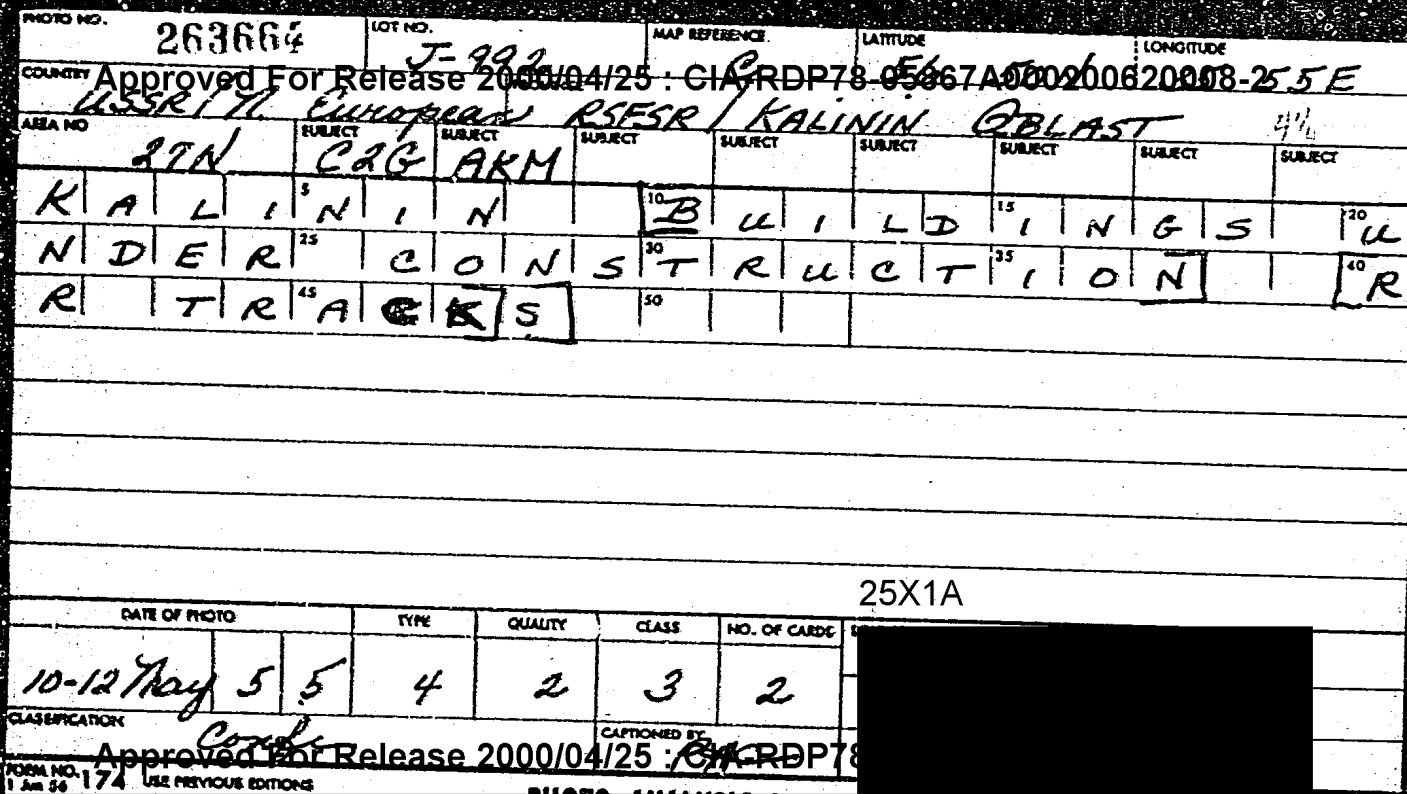 PHOTO NO. 263664 LOT NO. J-992 MAP REFERENCE C LATITUDE LONGITUDE 55E
COUNTRY Approved For Release 2000/04/25 : CIA-RDP78-05867A000200620008-2
USSR/N. European RSFSR / KALININ OBLAST
AREA NO 27N SUBJECT C2G SUBJECT AKM SUBJECT SUBJECT SUBJECT SUBJECT SUBJECT SUBJECT
K A L I 5 N I N 10 B U I L D 15 I N G S 20 U
N D E R 25 C O N S 30 T R U C T 35 I O N 40 R
R T R 45 A C K S 50
25X1A
DATE OF PHOTO TYPE QUALITY CLASS NO. OF CARDS
10-12 May 5 5 4 2 3 2
CLASSIFICATION Conf CAPTIONED BY
Approved For Release 2000/04/25 : CIA-RDP78
FORM NO. 174 USE PREVIOUS EDITIONS
1 Jun 56